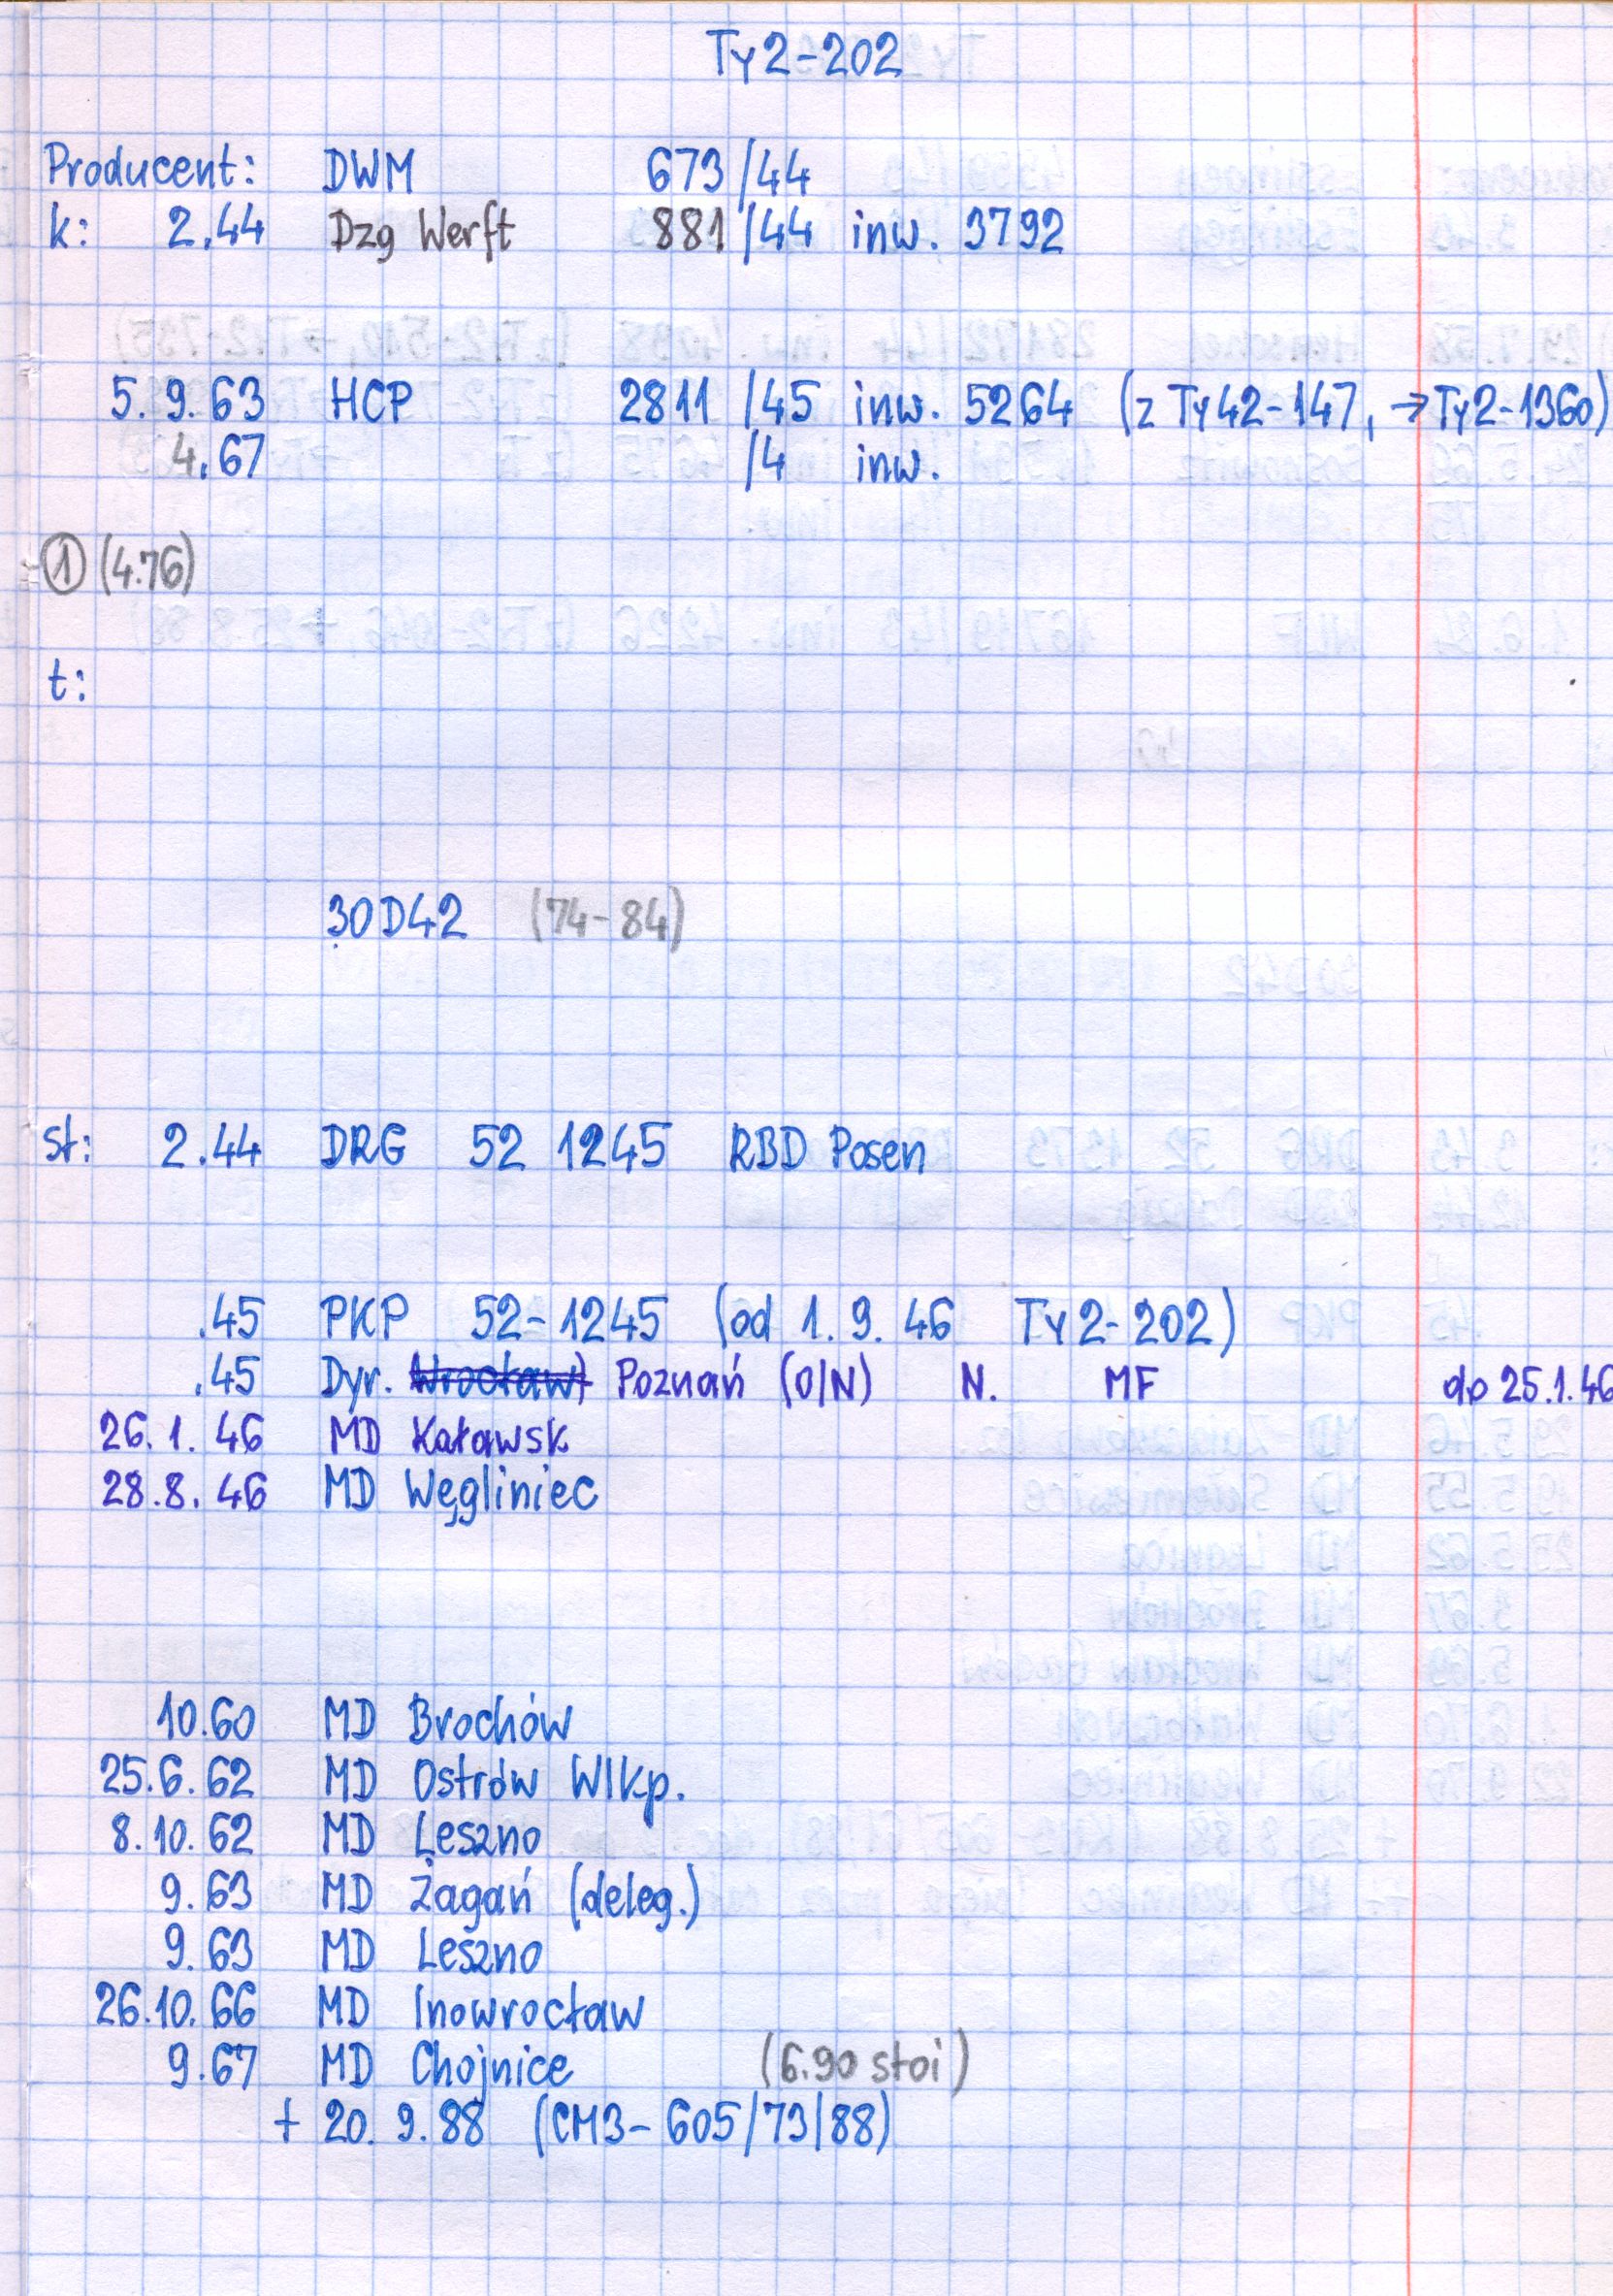 Ty2-202
Producent: DWM 673/44
k: 2.44 Dzg Werft 881/44 inw. 3792
5.9.63 HCP 2811/45 inw. 5264 (z Ty42-147, → Ty2-1360)
4.67 /4 inw.
① (4.76)
t:
30D42 (74-84)
st: 2.44 DRG 52 1245 RBD Posen
.45 PKP 52-1245 (od 1.9.46 Ty2-202)
.45 Dyr. Wrocław) Poznań (O/N) N. MF do 25.1.46
26.1.46 MD Kaławsk
28.8.46 MD Węgliniec
10.60 MD Brochów
25.6.62 MD Ostrów Wlkp.
8.10.62 MD Leszno
9.63 MD Żagań (deleg.)
9.63 MD Leszno
26.10.66 MD Inowrocław
9.67 MD Chojnice (6.90 stoi)
+ 20.9.88 (CM3-605/73/88)